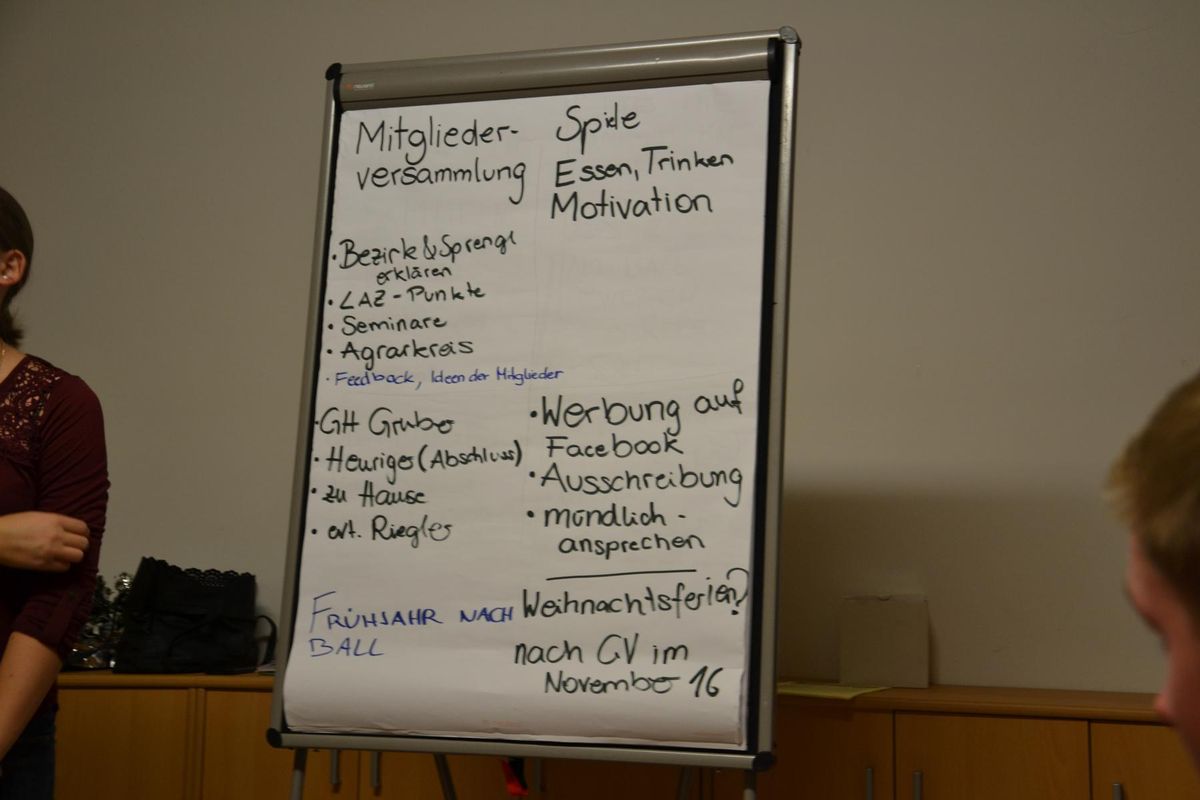 Mitglieder-
versammlung
Spiele
Essen, Trinken
Motivation
• Bezirk & Sprengl
erklären
• LAZ - Punkte
• Seminare
• Agrarkreis
• Feedback, Ideen der Mitglieder
• GH Gruber
• Heuriger (Abschluss)
• zu Hause
• evt. Riegler
• Werbung auf
Facebook
• Ausschreibung
• mündlich -
ansprechen
FRÜHJAHR NACH
BALL
Weihnachtsferien?
nach GV im
November 16